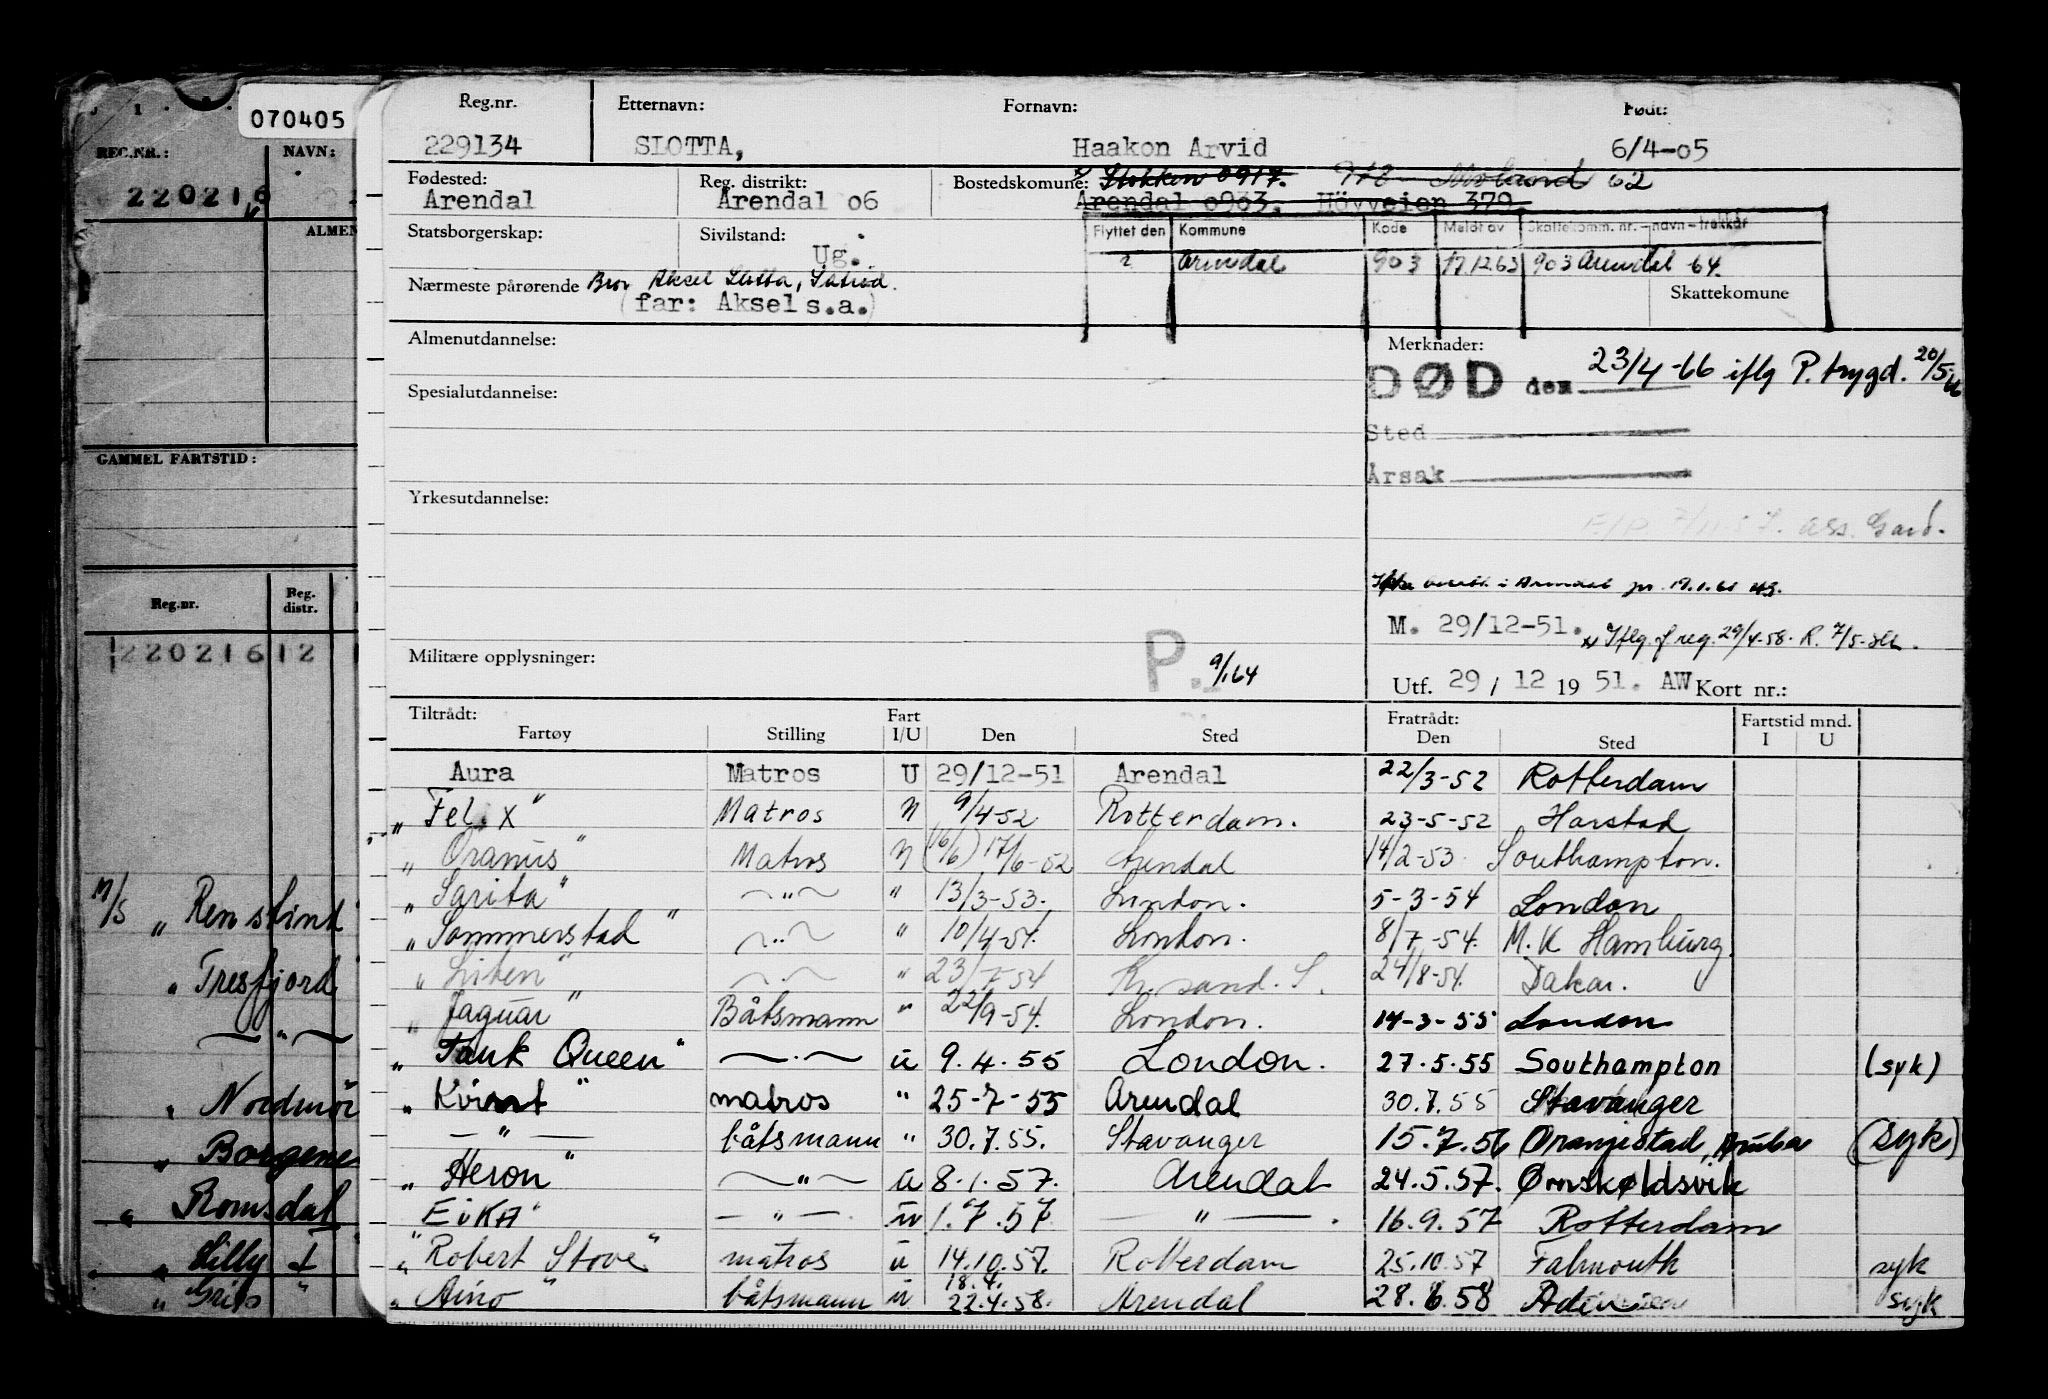 070405
REG.NR.: NAVN:
220216
ALMEN
GAMMEL FARTSTID:
Reg.nr. Reg. distr.
220216 12
M/S " Renstind
" Tresfjord
— " —
" Nordmør
" Borgene
" Romsdal
" Lilly
" Grip "
Reg.nr. Etternavn: Fornavn: Født:
229134 SLOTTA, Haakon Arvid 6/4-05
Fødested: Reg. distrikt: Bostedskomune: Stokken 0917. 918 Moland 62
Arendal Arendal 06 Arendal 0903. Høyveien 379.
Statsborgerskap: Sivilstand: Flyttet den Kommune Kode Meldt av Skattekomm. nr. - navn - trekkår
Ug. Arendal 903 17.1263 903 Arendal 64.
Nærmeste pårørende Bror Aksel Slotta, Saltrød.
(far: Aksel s.a.) Skattekomune
Almenutdannelse: Merknader:
DØD den 23/4-66 iflg P. trygd. 20/5-66
Spesialutdannelse:
Sted
Årsak
Yrkesutdannelse:
ass. Gard.
Ikke i Arendal pr. 19.1.61
M. 29/12-51. x Iflg. f reg. 29/4-58. R. 7/5-
Militære opplysninger: P. 9/64
Utf. 29 / 12 19 51. AW Kort nr.:
Tiltrådt: Fart Fratrådt: Fartstid mnd.
Fartøy Stilling I/U Den Sted Den Sted I U
Aura Matros U 29/12-51 Arendal 22/3-52 Rotterdam
" Felix " Matros " 9/4-52 Rotterdam. 23-5-52 Harstad
" Oranus " Matros " (16/6) 17/6-52 Arendal 14/2-53 Southampton.
" Sarita " — " — " 13/3-53. London. 5-3-54 London
" Sommerstad " — " — " 10/4-54. London. 8/7-54. M.K Hamburg
" Liten " — " — " 23/7-54 Kr.sand. S. 24/8-54. Dakar.
" Jaguar " Båtsmann " 22/9-54. London. 14-3-55 London
" Tank Queen " — " — u 9.4.55 London. 27.5.55 Southampton (syk)
" Kvint " matros " 25-7-55 Arendal 30.7.55 Stavanger
— " — båtsmann " 30.7.55. Stavanger 15.7.56 Oranjestad, Aruba (syk)
" Heron " — " — u 8.1.57. Arendal 24.5.57. Ørnskøldsvik
" Eika " — " — u 1.7.57 — " — . 16.9.57 Rotterdam
" Robert Stove " matros u 14.10.57. Rotterdam 25.10.57 Falmouth syk
18.4.
" Aino " båtsmann u 22.4.58. Arendal 28.6.58 Aden syk